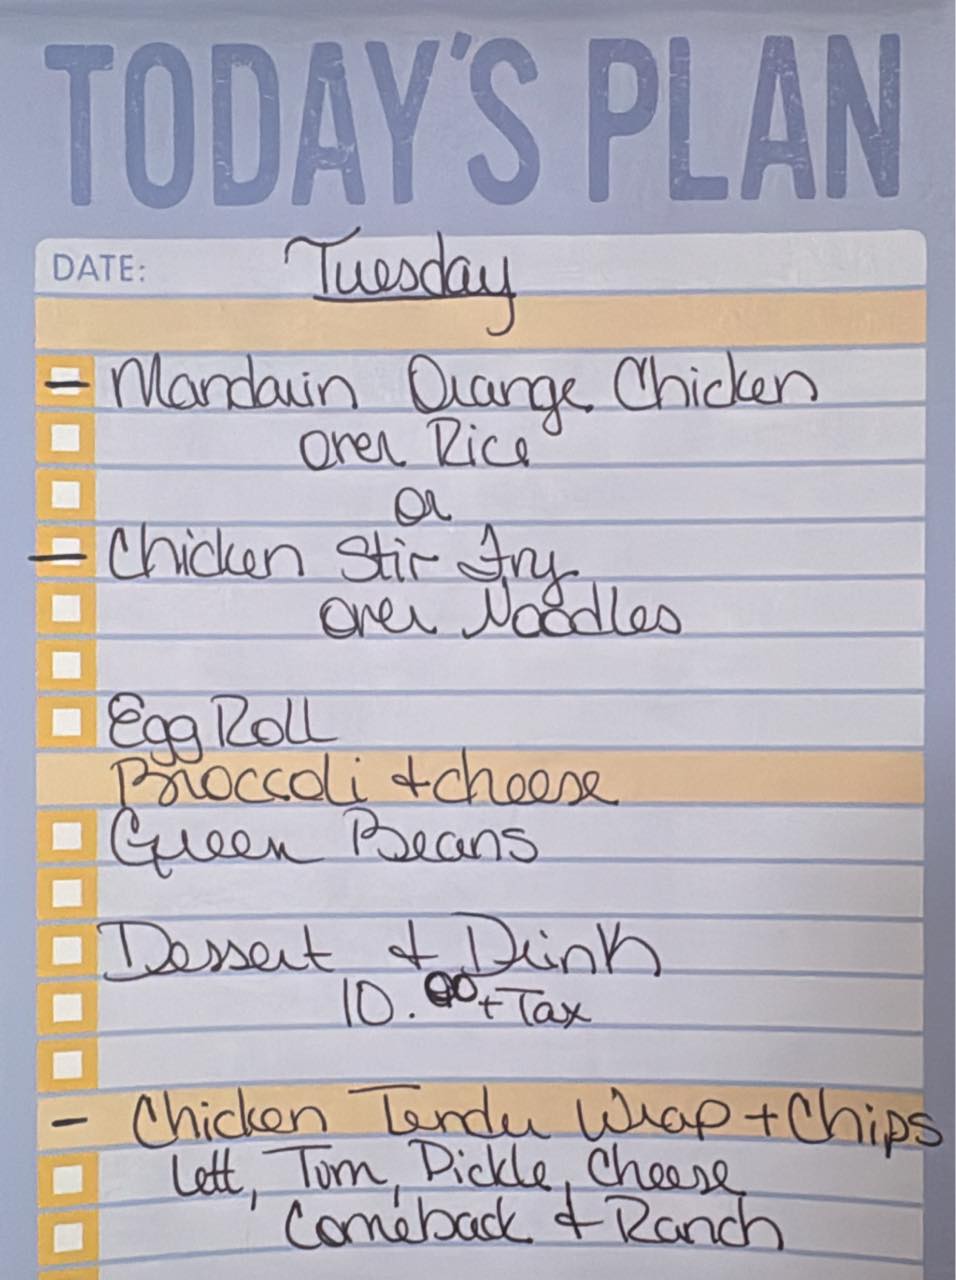 TODAY'S PLAN
DATE: Tuesday
- Mandarin Orange Chicken
over Rice
or
- Chicken Stir Fry
over Noodles
Egg Roll
Broccoli + cheese
Green Beans
Dessert & Drink
10.00 + Tax
- Chicken Tender Wrap + Chips
Lett, Tom, Pickle, Cheese
Comeback & Ranch